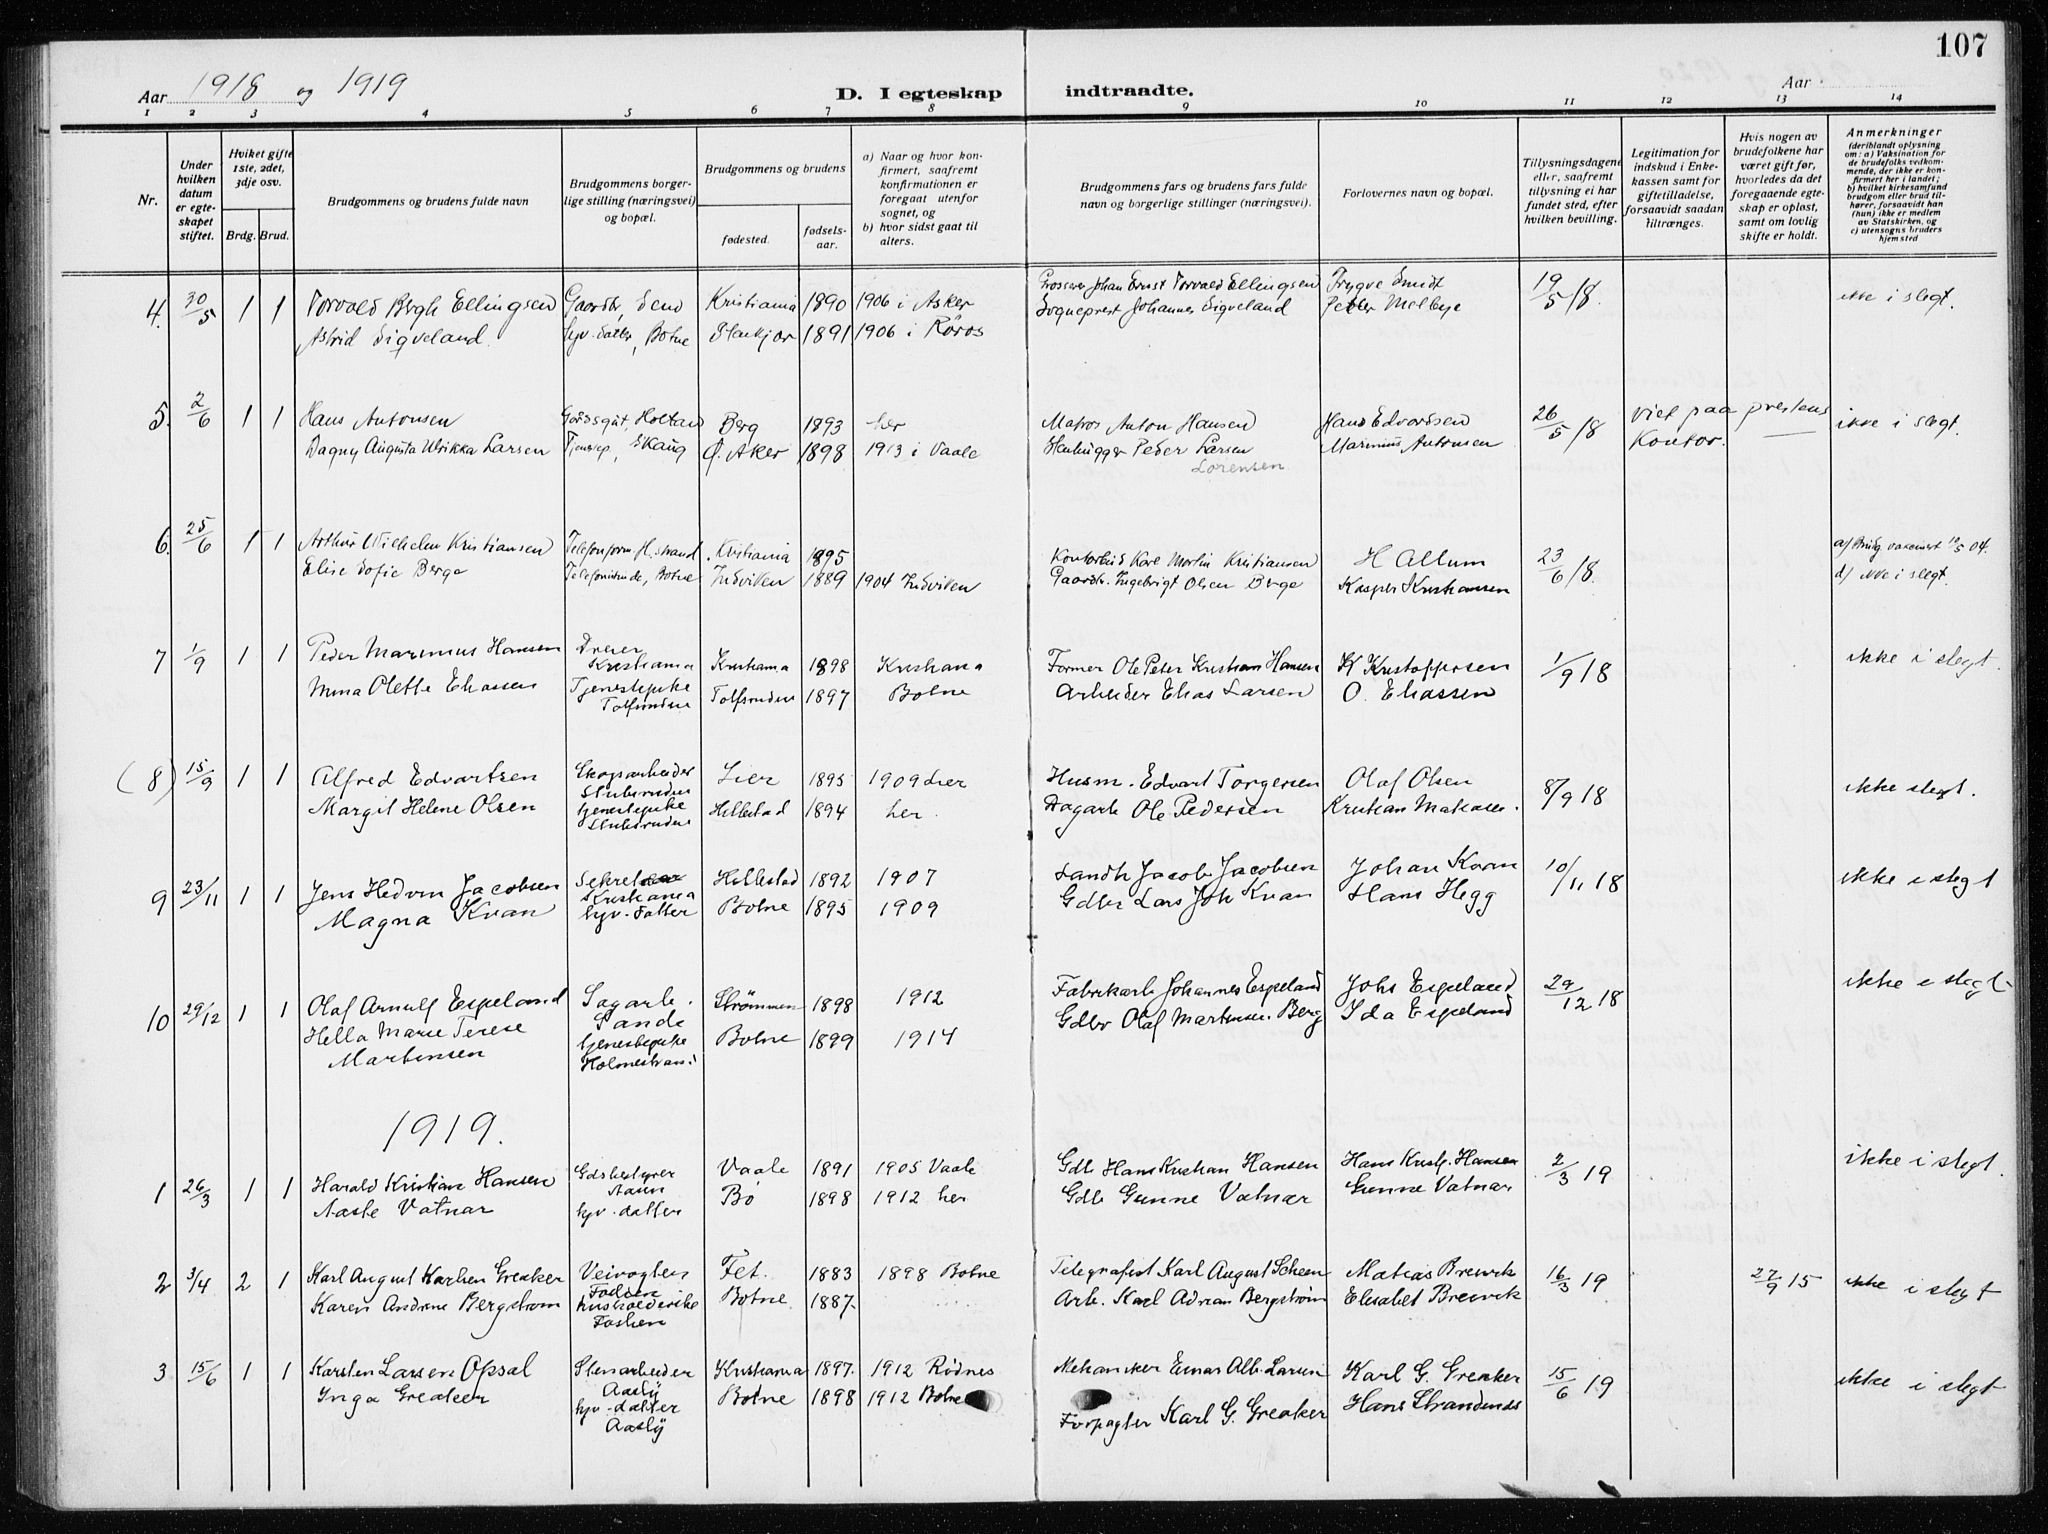 107
Aar 1918 og 1919 D. I egteskap indtraadte. Aar
1 2 3 4 5 6 7 8 9 10 11 12 13 14
Nr.
Under hvilken datum er egteskapet stiftet.
Hviket gifte 1ste, 2det, 3dje osv.
Brdg. Brud.
Brudgommens og brudens fulde navn
Brudgommens borgerlige stilling (næringsvei) og bopæl.
Brudgommens og brudens
fødested. fødselsaar.
a) Naar og hvor konfirmert, saafremt konfirmationen er foregaat utenfor sognet, og
b) hvor sidst gaat til alters.
Brudgommens fars og brudens fars fulde navn og borgerlige stillinger (næringsvei).
Forlovernes navn og bopæl.
Tillysningsdagene eller, saafremt tillysning ei har fundet sted, efter hvilken bevilling.
Legitimation for indskud i Enkekassen samt for giftetilladelse, forsaavidt saadan tiltrænges.
Hvis nogen av brudefolkene har været gift før, hvorledes da det foregaaende egteskap er opløst, samt om lovlig skifte er holdt.
Anmerkninger
(deriblandt oplysning om: a) Vaksination for de brudefolks vedkommende, der ikke er konfirmert her i landet; b) hvilket kirkesamfund brudgom eller brud tilhører, forsaavidt han (hun) ikke er medlem av Statskirken, og c) utensogns bruders hjemsted
4. 30/5 1 1 Torvald Bergh Ellingsen Gaardbr, Sem Kristiania 1890 1906 i Asker Grosserer Johan Ernst Torvald Ellingsen Trygve Smidt 19/5 18. ikke i slegt.
Astrid Sigveland hjv. datter, Botne Stenkjær 1891 1906 i Röros Sogneprest Johannes Sigveland Petter Melbye
5. 2/6 1 1 Hans Antonsen Gaardsgut, Holtan Berg 1893 her Matros Anton Hansen Hans Edvardsen 26/5 18 viet paa prestens ikke i slegt.
Dagny Augusta Ulrikka Larsen Tjenestep, Skaug Ø. Aker 1898 1913 i Vaale Stenhugger Peder Larsen Marinius Antonsen kontor.
Lorensen
6. 25/6 1 1 Arthur Wilhelm Kristiansen Telefonform. H.strand Kristiania 1895 Kontorbud Karl Martin Kristiansen H Allum 23/6 18. a) Brudg vaksinert 10/5 04.
Elise Sofie Berge Telefonistinde, Botne Indviken 1889 1904 Indviken Gaardbr. Ingebrigt Olsen Berge Kasper Kristiansen d) ikke i slegt.
7 1/9 1 1 Peder Marinius Hansen Dreier Kristiania Kristiania 1898 Kristiania Former Ole Peter Kristian Hansen K Kristoffersen 1/9 18 ikke i slegt.
Mina Olette Eliassen Tjenestepike Tolfsruden Tolfsruden 1897 Botne Arbeider Elias Larsen O. Eliassen
(8) 15/9 1 1 Alfred Edvartsen Skogsarbeider Stubsruden Lier 1895 1909 Lier Husm. Edvart Torgersen Olaf Olsen 8/9 18 ikke slegt.
Margit Helene Olsen tjenestepike Stubsruden Hillestad 1894 her. Dagarb Ole Pedersen Kristian
9 23/11 1 1 Jens Hedvin Jacobsen Sekretær Kristiania Hillestad 1892 1907 Landh Jacob Jacobsen Johan Kvan 10/11 18 ikke i slegt
Magna Kvan hjv. datter Botne 1895 1909 Gdbr Lars Joh Kvan Hans Hegg
10 29/12 1 1 Olaf Arnulf Espeland Sagarb. Sande Strømmen 1898 1912 Fabrikarb Johannes Espeland Johs Espeland 29/12 18 ikke i slegt
Hella Marie Terese Martinsen tjenestepike Holmestrand Botne 1899 1914 Gdbr Olaf Martinsen Berg Ida Espeland
1919.
1 26/3 1 1 Harald Kristian Hansen Gdsbestyrer Vaale 1891 1905 Vaale Gdb Hans Kristian Hansen Hans Krist. Hansen 2/3 19 ikke i slegt.
Aaste Vatnar hjv. datter Bø 1898 1912 her Gdb Gunne Vatnar Gunne Vatnar
2 3/4 2 1 Karl August Karlsen Greaker Veivogter Fet. 1883 1898 Botne Telegrafist Karl August Scheen Matias Brevik 16/3 19 27/9 15 ikke i slegt
Karen Andrine Bergstrøm husholderske Botne 1887. Arb. Karl Adrian Bergstrøm Elisabet Brevik
3 15/6 1 1 Karsten Larsen Opsal Stenarbeider Aasly Kristiania 1897. 1912 Rødnes Mekaniker Einar Alb. Larsen Karl G. Greaker 15/6 19 ikke i slegt
Inga Greaker hjv. datter Aasly Botne 1898 1912 Botne Forpagter Karl G. Greaker Hans